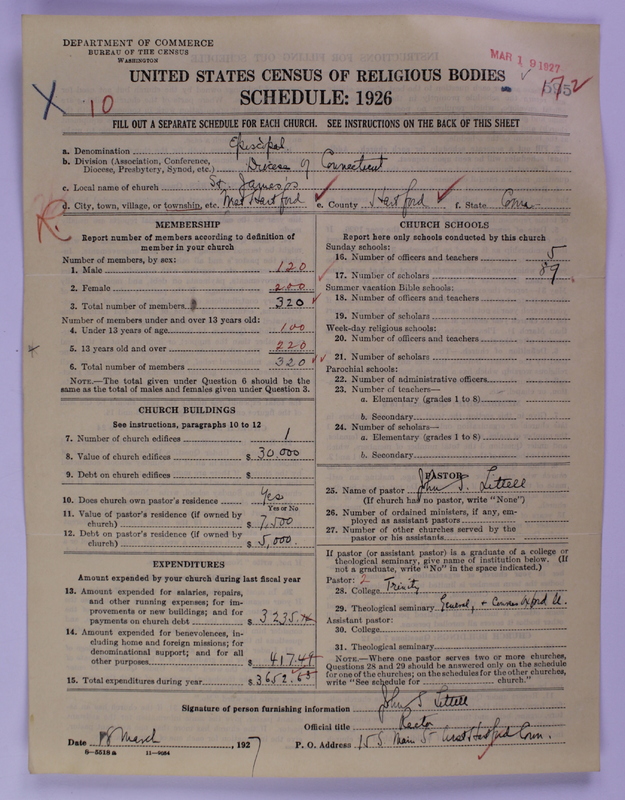 DEPARTMENT OF COMMERCE
BUREAU OF THE CENSUS
WASHINGTON
MAR 19 1927
UNITED STATES CENSUS OF RELIGIOUS BODIES
SCHEDULE: 1926
10
FILL OUT A SEPARATE SCHEDULE FOR EACH CHURCH. SEE INSTRUCTIONS ON THE BACK OF THIS SHEET
a. Denomination Episcopal
b. Division (Association, Conference, Diocese, Presbytery, Synod, etc.) Diocese of Connecticut
c. Local name of church St. James's
d. City, town, village, or township, etc. West Hartford e. County Hartford f. State Conn
MEMBERSHIP
Report number of members according to definition of
member in your church
Number of members, by sex:
1. Male 120
2. Female 200
3. Total number of members 320
Number of members under and over 13 years old:
4. Under 13 years of age 100
5. 13 years old and over 220
6. Total number of members 320
NOTE.—The total given under Question 6 should be the
same as the total of males and females given under Question 3.
CHURCH BUILDINGS
See instructions, paragraphs 10 to 12
7. Number of church edifices 1
8. Value of church edifices $ 30,000
9. Debt on church edifices $
10. Does church own pastor's residence Yes
Yes or No
11. Value of pastor's residence (if owned by
church) $ 7,500
12. Debt on pastor's residence (if owned by
church) $ 5,000.
EXPENDITURES
Amount expended by your church during last fiscal year
13. Amount expended for salaries, repairs,
and other running expenses; for im-
provements or new buildings; and for
payments on church debt $ 3235.
14. Amount expended for benevolences, in-
cluding home and foreign missions; for
denominational support; and for all
other purposes $ 417.
15. Total expenditures during year $ 3652.
CHURCH SCHOOLS
Report here only schools conducted by this church
Sunday schools:
16. Number of officers and teachers 5
17. Number of scholars 89
Summer vacation Bible schools:
18. Number of officers and teachers
19. Number of scholars
Week-day religious schools:
20. Number of officers and teachers
21. Number of scholars
Parochial schools:
22. Number of administrative officers
23. Number of teachers—
a. Elementary (grades 1 to 8)
b. Secondary
24. Number of scholars—
a. Elementary (grades 1 to 8)
b. Secondary
PASTOR
25. Name of pastor John S. Littell
(If church has no pastor, write "None")
26. Number of ordained ministers, if any, em-
ployed as assistant pastors
27. Number of other churches served by the
pastor or his assistants
If pastor (or assistant pastor) is a graduate of a college or
theological seminary, give name of institution below. (If
not a graduate, write "No" in the space indicated.)
Pastor: 2
28. College Trinity
29. Theological seminary General, + Oxford U.
Assistant pastor:
30. College
31. Theological seminary
NOTE.—Where one pastor serves two or more churches,
Questions 28 and 29 should be answered only on the schedule
for one of the churches; on the schedules for the other churches,
write "See schedule for church."
Signature of person furnishing information John S Littell
Official title Rector
Date 18 March, 1927 P. O. Address 15 S. Main St West Hartford Conn.
8-5518a 11-9034